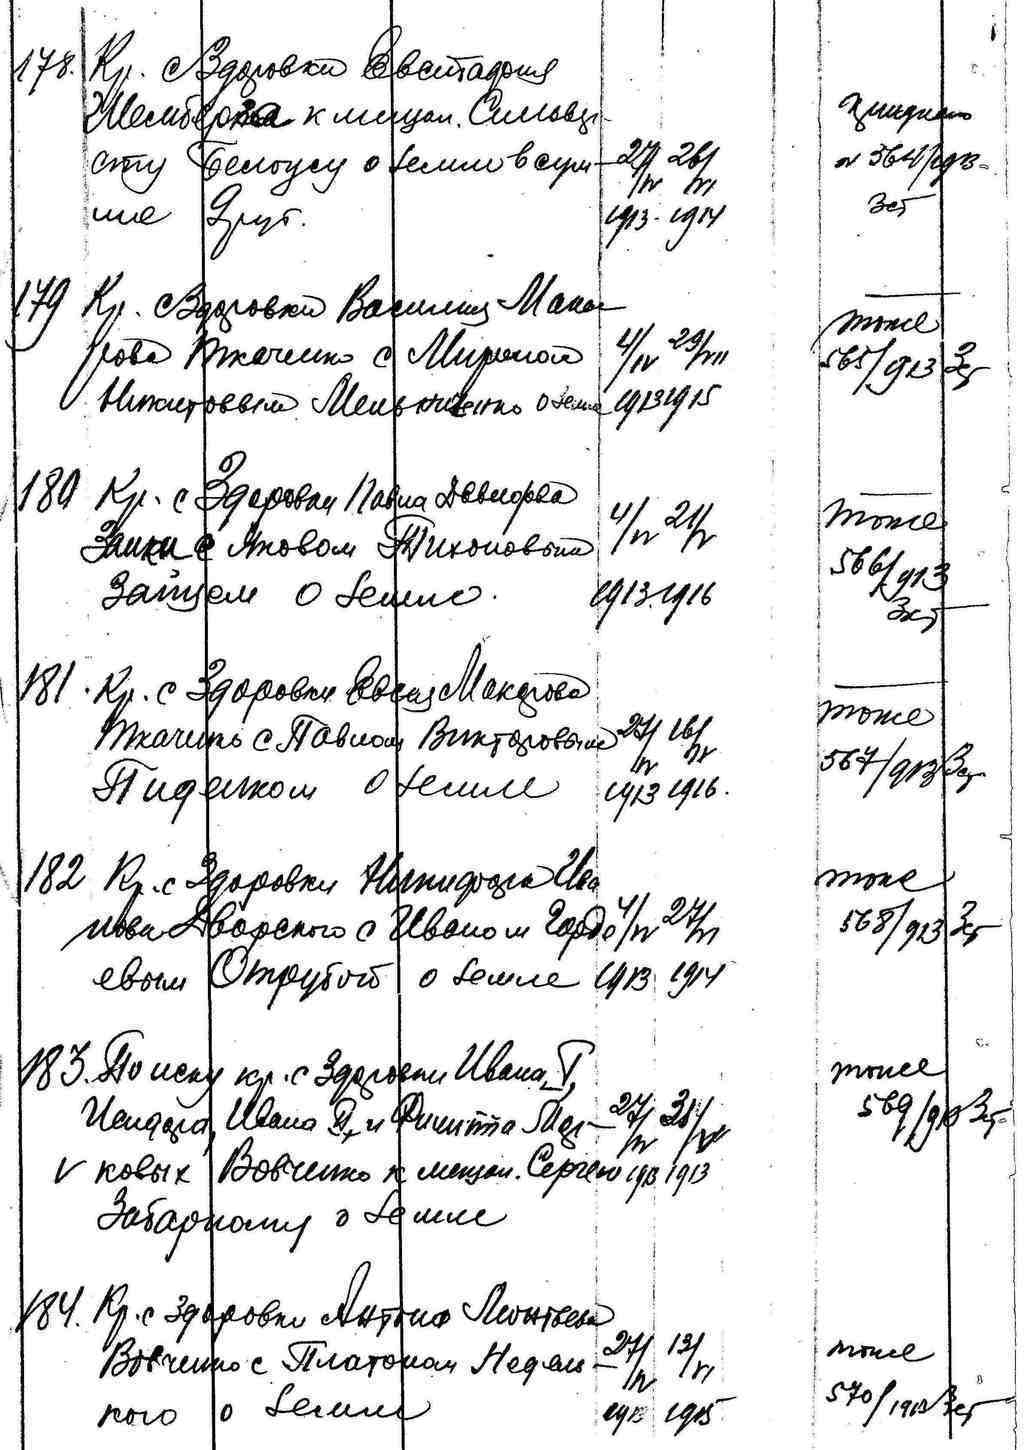 178. Кр. с Здоровки Евстафия
к мещан.
сту Белоусу о земле в сум- 27/IV 26/VI
ме руб. 1913. 1914
№ 564/1913
Зст
179 Кр. с Здоровки Василия Мака-
рова Ткаченко с Мироном 4/IV 29/VIII
Никитовым Мельниченко о земле 1913 1915
тоже
565/913 Зст
180 Кр. с Здоровки Павла
Заики с Яковом Тихоновым 4/IV 21/V
Зайцем о земле. 1913. 1916
тоже
566/913
Зст
181. Кр. с Здоровки Евсея Макарова
Ткаченко с Павлом Викторовым 27/IV 16/IV
о земле 1913 1916.
тоже
567/913 Зст
182 Кр. с Здоровки Никифора Ива
нова Дворского с Иваном Гордо 4/IV 27/VI
евым Отрубой о земле 1913 1914
тоже
568/913 Зст
183. По иску кр. с Здоровки Ивана I,
Исидора, Ивана II, и Филиппа Мар- 27/IV
V ковых Вовченко к мещан. Сергею 1913 1913
Забарному о земле
тоже
569/913 Зст
184. Кр. с Здоровки Антона Леонтьева
Вовченко с Платоном Недель- 27/IV 13/VI
кого о земле 1913 1915
тоже
570/1913 Зст